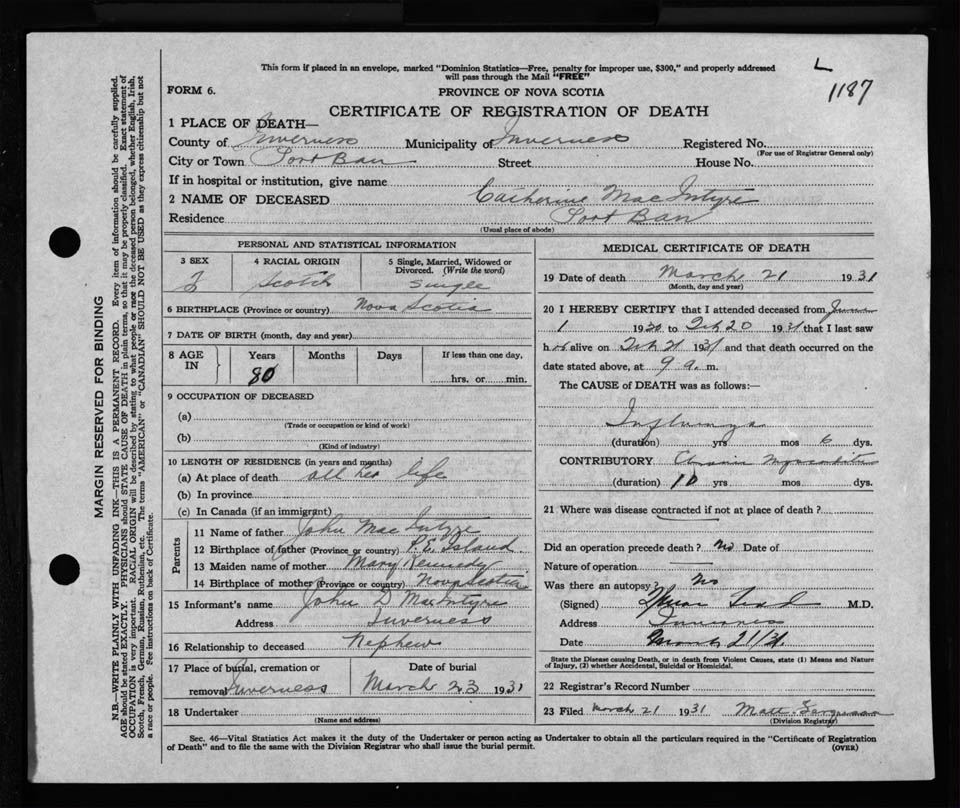 This form if placed in an envelope, marked "Dominion Statistics—Free, penalty for improper use, $300," and properly addressed
will pass through the Mail "FREE"
L
1187
FORM 6.
PROVINCE OF NOVA SCOTIA
CERTIFICATE OF REGISTRATION OF DEATH
1 PLACE OF DEATH—
County of Inverness Municipality of Inverness Registered No.
(For use of Registrar General only)
City or Town Port Ban Street House No.
If in hospital or institution, give name
2 NAME OF DECEASED Catherine MacIntyre
Residence Port Ban
(Usual place of abode)
PERSONAL AND STATISTICAL INFORMATION
3 SEX 4 RACIAL ORIGIN 5 Single, Married, Widowed or
Divorced. (Write the word)
F Scotch Single
6 BIRTHPLACE (Province or country) Nova Scotia
7 DATE OF BIRTH (month, day and year)
8 AGE IN Years Months Days If less than one day,
80 hrs. or min.
9 OCCUPATION OF DECEASED
(a)
(Trade or occupation or kind of work)
(b)
(Kind of industry)
10 LENGTH OF RESIDENCE (in years and months)
(a) At place of death all her life
(b) In province
(c) In Canada (if an immigrant)
Parents
11 Name of father John MacIntyre
12 Birthplace of father (Province or country) P. E. Island
13 Maiden name of mother Mary Kennedy
14 Birthplace of mother (Province or country) Nova Scotia
15 Informant's name John D MacIntyre
Address Inverness
16 Relationship to deceased Nephew
17 Place of burial, cremation or Date of burial
removal Inverness March 23 1931
18 Undertaker
(Name and address)
MEDICAL CERTIFICATE OF DEATH
19 Date of death March 21 1931
(Month, day and year)
20 I HEREBY CERTIFY that I attended deceased from June
1 1930 to Feb 20 1931 that I last saw
her alive on Feb 21 1931 and that death occurred on the
date stated above, at 9 a. m.
The CAUSE of DEATH was as follows:—
Influenza
(duration) yrs mos 6 dys.
CONTRIBUTORY Chronic Myocarditis
(duration) 10 yrs mos dys.
21 Where was disease contracted if not at place of death?
Did an operation precede death? no Date of
Nature of operation
Was there an autopsy? No
(Signed) M.D.
Address Inverness
Date March 21/31
State the Disease causing Death, or in death from Violent Causes, state (1) Means and Nature
of Injury, (2) whether Accidental, Suicidal or Homicidal.
22 Registrar's Record Number
23 Filed March 21 1931 Matt. Ferguson
(Division Registrar)
Sec. 46—Vital Statistics Act makes it the duty of the Undertaker or person acting as Undertaker to obtain all the particulars required in the "Certificate of Registration
of Death" and to file the same with the Division Registrar who shall issue the burial permit.
(OVER)
MARGIN RESERVED FOR BINDING
N.B.—WRITE PLAINLY WITH UNFADING INK—THIS IS A PERMANENT RECORD. Every item of information should be carefully supplied.
AGE should be stated EXACTLY. PHYSICIANS should STATE CAUSE OF DEATH in plain terms, so that it may be properly classified. Exact statement of
OCCUPATION is very important. RACIAL ORIGIN will be described by stating to what people or race the deceased person belonged, whether English, Irish,
Scotch, French, German, Russian, Ruthenian, etc. The terms "AMERICAN" or "CANADIAN" SHOULD NOT BE USED as they express citizenship but not
a race or people. See instructions on back of Certificate.